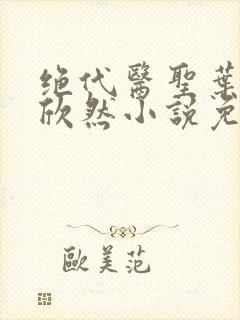 绝代醫聖葉
欣然小說免
歐美范